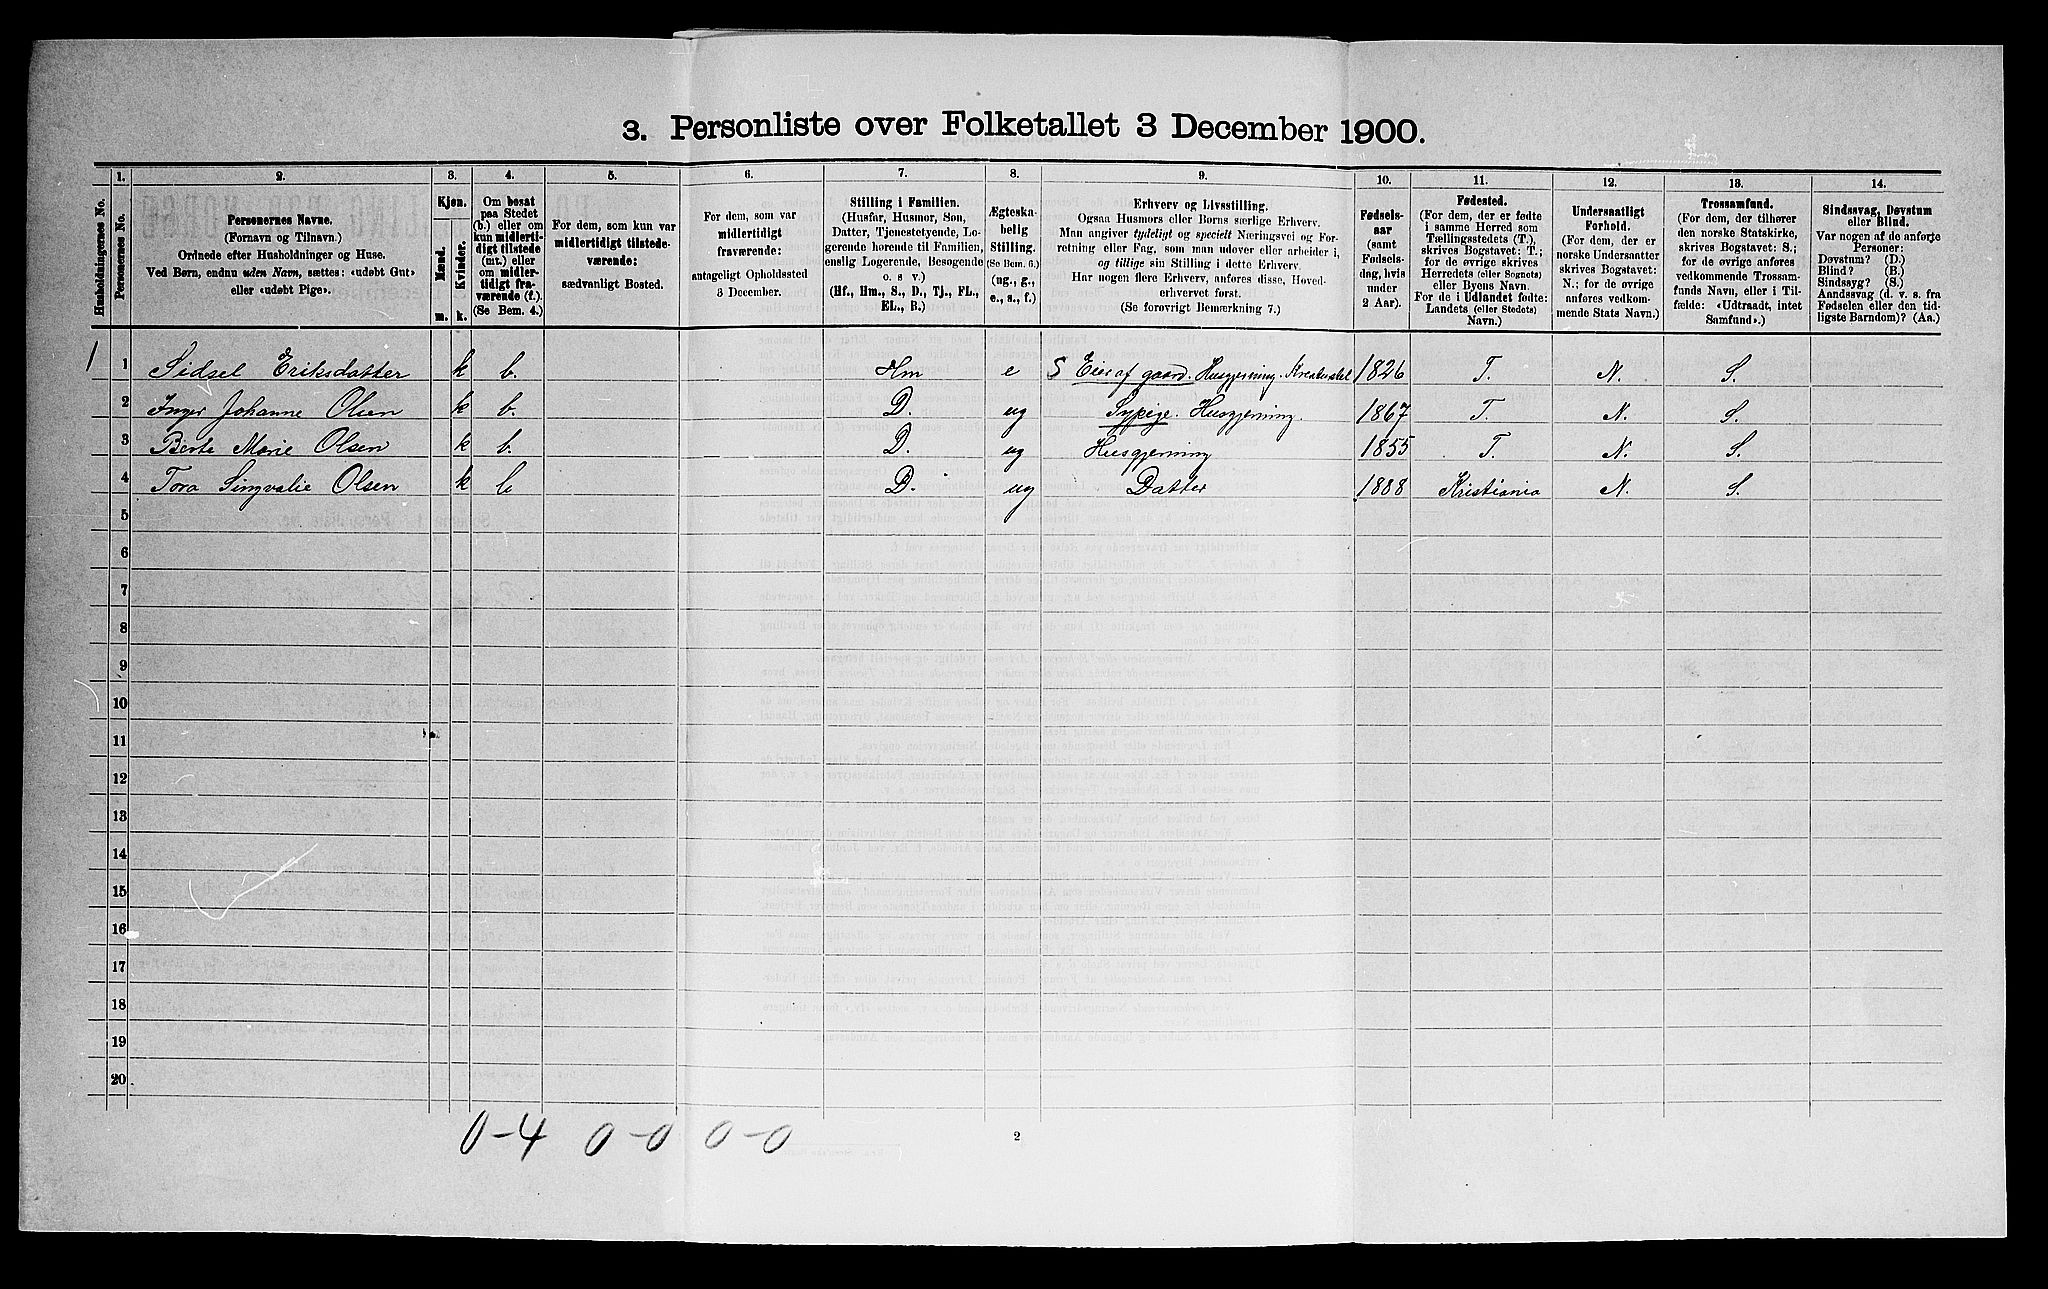 3. Personliste over Folketallet 3 December 1900.
1. 2. 3. 4. 5. 6. 7. 8. 9. 10. 11. 12. 13. 14.
Husholdningernes No.
Personernes No.
Personernes Navne.
(Fornavn og Tilnavn.)
Ordnede efter Husholdninger og Huse.
Ved Børn, endnu uden Navn, sættes: «udøbt Gut»
eller «udøbt Pige».
Kjøn.
Mænd.
Kvinder.
m. k.
Om bosat
paa Stedet
(b.) eller om
kun midlerti-
digt tilstede
(mt.) eller
om midler-
tidigt fra-
værende (f.).
(Se Bem. 4.)
For dem, som kun var
midlertidigt tilstede-
værende:
sædvanligt Bosted.
For dem, som var
midlertidigt
fraværende:
antageligt Opholdssted
3 December.
Stilling i Familien.
(Husfar, Husmor, Søn,
Datter, Tjenestetyende, Lo-
gerende hørende til Familien,
enslig Logerende, Besøgende
o. s v.)
(Hf., Hm., S., D., Tj., FL.,
EL., B.)
Ægteska-
belig
Stilling.
(Se Bem. 6.)
(ug., g.,
e., s., f.)
Erhverv og Livsstilling.
Ogsaa Husmors eller Børns særlige Erhverv.
Man angiver tydeligt og specielt Næringsvei og For-
retning eller Fag, som man udøver eller arbeider i,
og tillige sin Stilling i dette Erhverv.
Har nogen flere Erhverv, anføres disse, Hoved-
erhvervet først.
(Se forøvrigt Bemærkning 7.)
Fødsels-
aar
(samt
Fødsels-
dag, hvis
under
2 Aar).
Fødested.
(For dem, der er fødte
i samme Herred som
Tællingsstedets (T.),
skrives Bogstavet: T.;
for de øvrige skrives
Herredets (eller Sognets)
eller Byens Navn.
For de i Udlandet fødte:
Landets (eller Stedets)
Navn.)
Undersaatligt
Forhold.
(For dem, der er
norske Undersaatter
skrives Bogstavet:
N.; for de øvrige
anføres vedkom-
mende Stats Navn.)
Trossamfund.
(For dem, der tilhører
den norske Statskirke,
skrives Bogstavet: S.;
for de øvrige anføres
vedkommende Trossam-
funds Navn, eller i Til-
fælde: «Udtraadt, intet
Samfund».)
Sindssvag, Døvstum
eller Blind.
Var nogen af de anførte
Personer:
Døvstum? (D.)
Blind? (B.)
Sindssyg? (S.)
Aandssvag (d. v. s. fra
Fødselen eller den tid-
ligste Barndom)? (Aa.)
1 1 Sidsel Eriksdatter k b. Hm e S Eier af gaard. Husgjerning. Kreaturstel 1826 T. N. S.
2 Inger Johanne Olsen k b. D. ug Sypige. Husgjerning. 1867 T. N. S.
3 Berte Marie Olsen k b. D. ug Husgjerning 1855 T. N. S.
4 Tora Singvalie Olsen k b D. ug Datter 1888 Kristiania N. S.
5
6
7
8
9
10
11
12
13
14
15
16
17
18
19
20
0-4 0-0 0-0
2